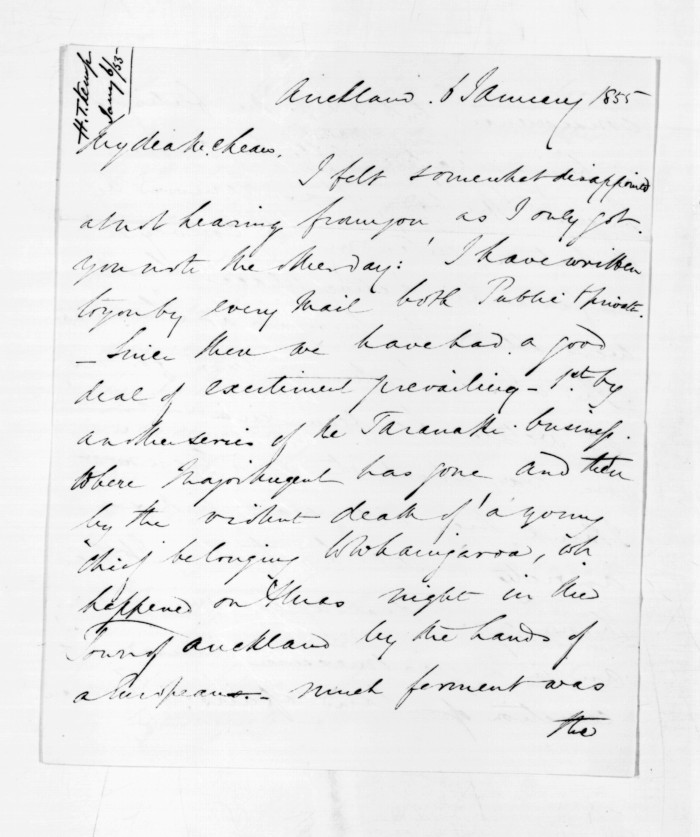 H. T. Kemp
Jany 6/55
Auckland. 6 January 1855
My dear McLean.
I felt somewhat disappointed
at not hearing from you as I only got
you note the other day: I have written
to you by every Mail both Public & private.
- Since then we have had a good
deal of excitement prevailing - 1st. by
another series of the Taranaki business.
where Major Nugent has gone and then
by the violent death of a young
chief belonging to Whaingaroa, wh
happened on Xmas night in the
Town of Auckland by the hands of
a European - much ferment was
the